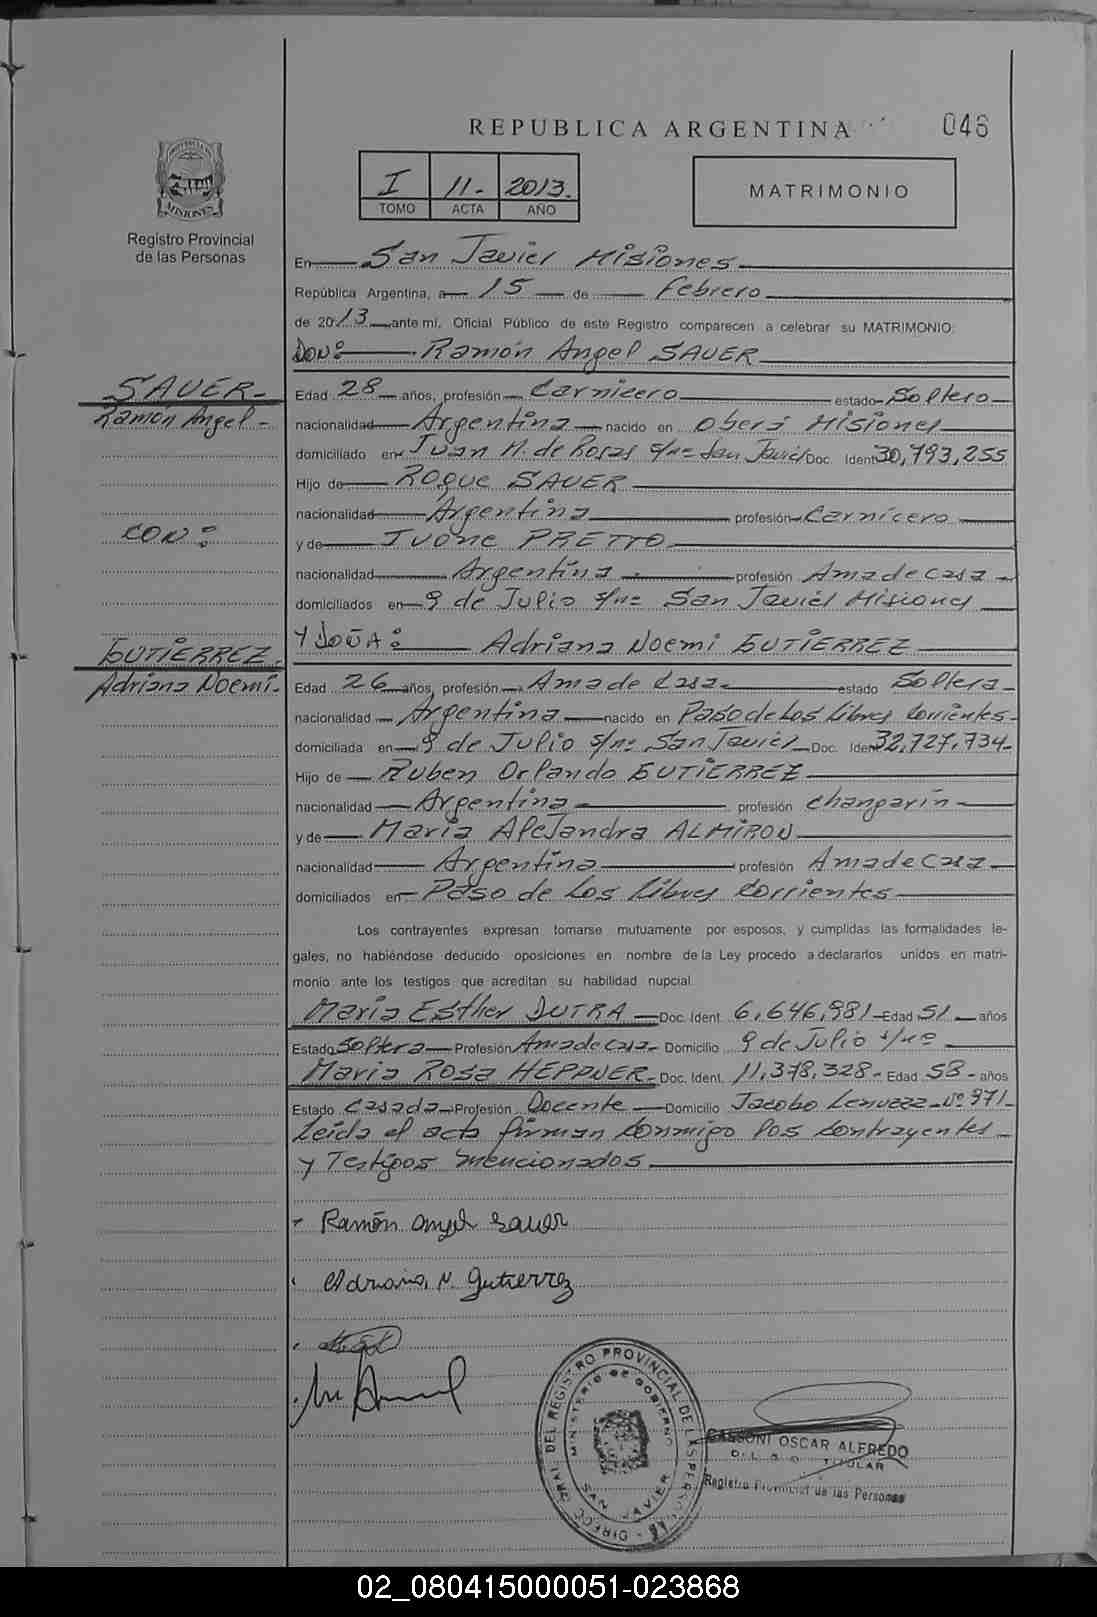 REPUBLICA ARGENTINA
046
PROVINCIA DE
MISIONES
Registro Provincial
de las Personas
I 11. 2013.
TOMO ACTA AÑO
MATRIMONIO
En San Javier Misiones
República Argentina, a 15 de Febrero
de 2013 ante mí, Oficial Público de este Registro comparecen a celebrar su MATRIMONIO:
DON: Ramón Angel SAUER
SAUER
Ramón Angel
Edad 28 años, profesión Carnicero estado Soltero
nacionalidad Argentina nacido en Oberá Misiones
domiciliado en Juan M. de Rosas s/nº San Javier Doc. Ident 30,793,255
Hijo de Roque SAUER
nacionalidad Argentina profesión Carnicero
CON:
y de Ivone PRETTO
nacionalidad Argentina profesión Ama de casa
domiciliados en 9 de Julio s/nº San Javier Misiones
Y DOÑA: Adriana Noemi GUTIERREZ
GUTIERREZ
Adriana Noemi.
Edad 26 años, profesión Ama de Casa estado Soltera
nacionalidad Argentina nacido en Paso de Los Libres Corrientes
domiciliada en 9 de Julio s/nº San Javier Doc. Iden 32,727,734
Hijo de Ruben Orlando GUTIERREZ
nacionalidad Argentina profesión Changarín
y de Maria Alejandra ALMIRON
nacionalidad Argentina profesión Ama de casa
domiciliados en Paso de Los Libres Corrientes
Los contrayentes expresan tomarse mutuamente por esposos, y cumplidas las formalidades le-
gales, no habiéndose deducido oposiciones en nombre de la Ley procedo a declararlos unidos en matri-
monio ante los testigos que acreditan su habilidad nupcial
Maria Esther DUTRA Doc. Ident. 6,646,981 Edad 51 años
Estado Soltera Profesión Ama de casa Domicilio 9 de Julio s/nº
Maria Rosa HEPPNER Doc. Ident. 11,378,328 Edad 58 años
Estado Casada Profesión Docente Domicilio Jacobo Nº 971
Leída el acta firman Conmigo los Contrayentes
y Testigos mencionados
Ramón Angel Sauer
Adriana N. Gutierrez
DIREC. GRAL. DEL REGISTRO PROVINCIAL DE LAS PERSONAS
MINISTERIO DE GOBIERNO
SAN JAVIER
OSCAR ALFREDO
TITULAR
Registro Provincial de las Personas
02_080415000051-023868